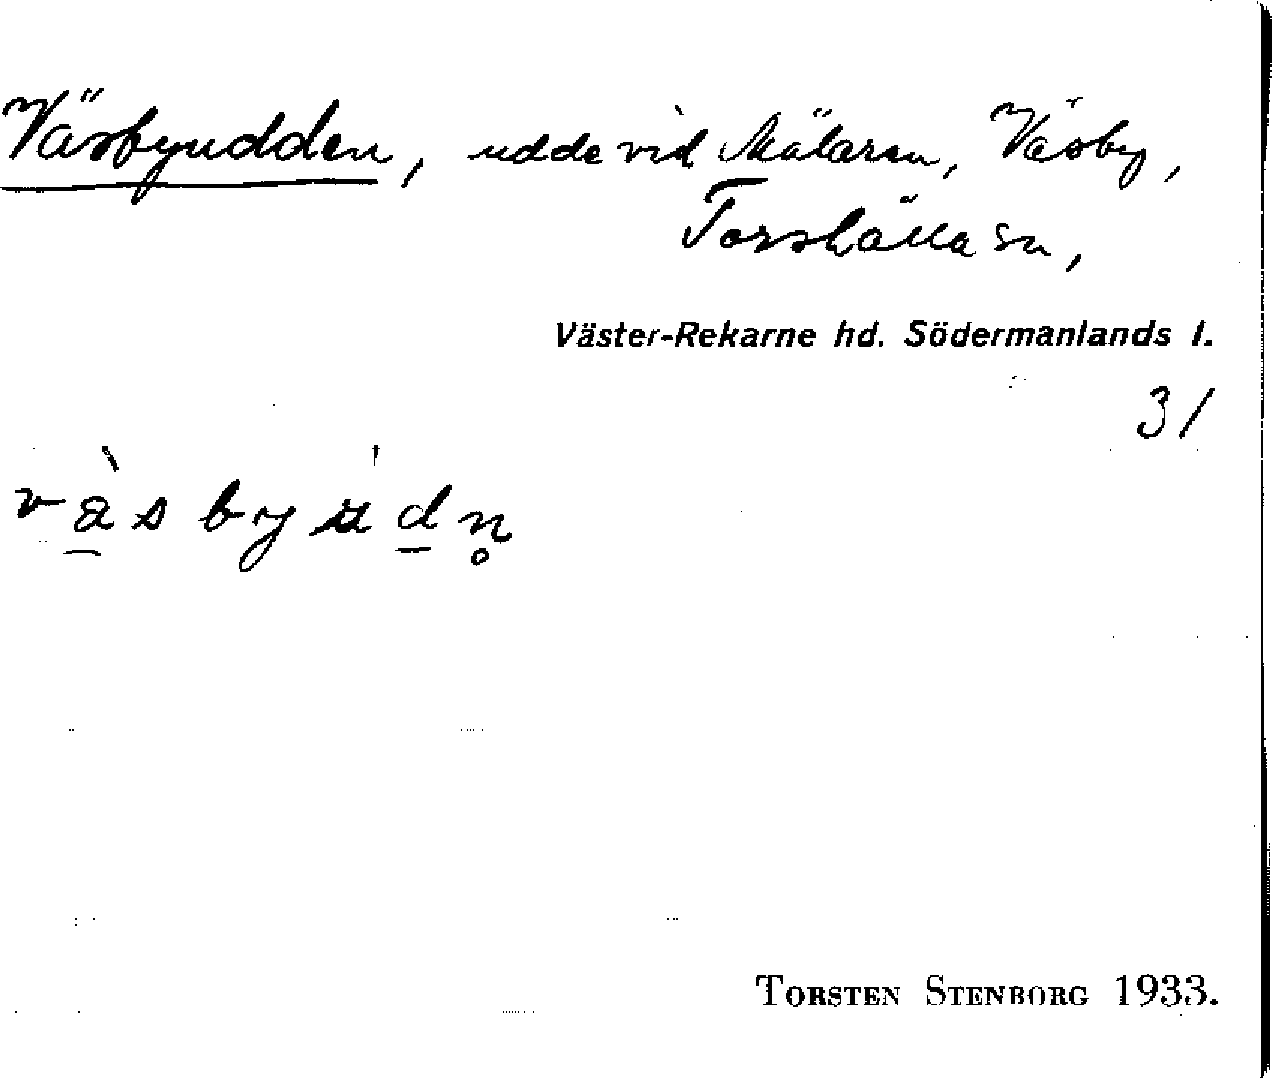 Väsbyudden, udde vid Mälaren, Väsby,
Torshälla sn,
Väster-Rekarne hd. Södermanlands l.
31
vä̀sbyúdn̥
TORSTEN STENBORG 1933.